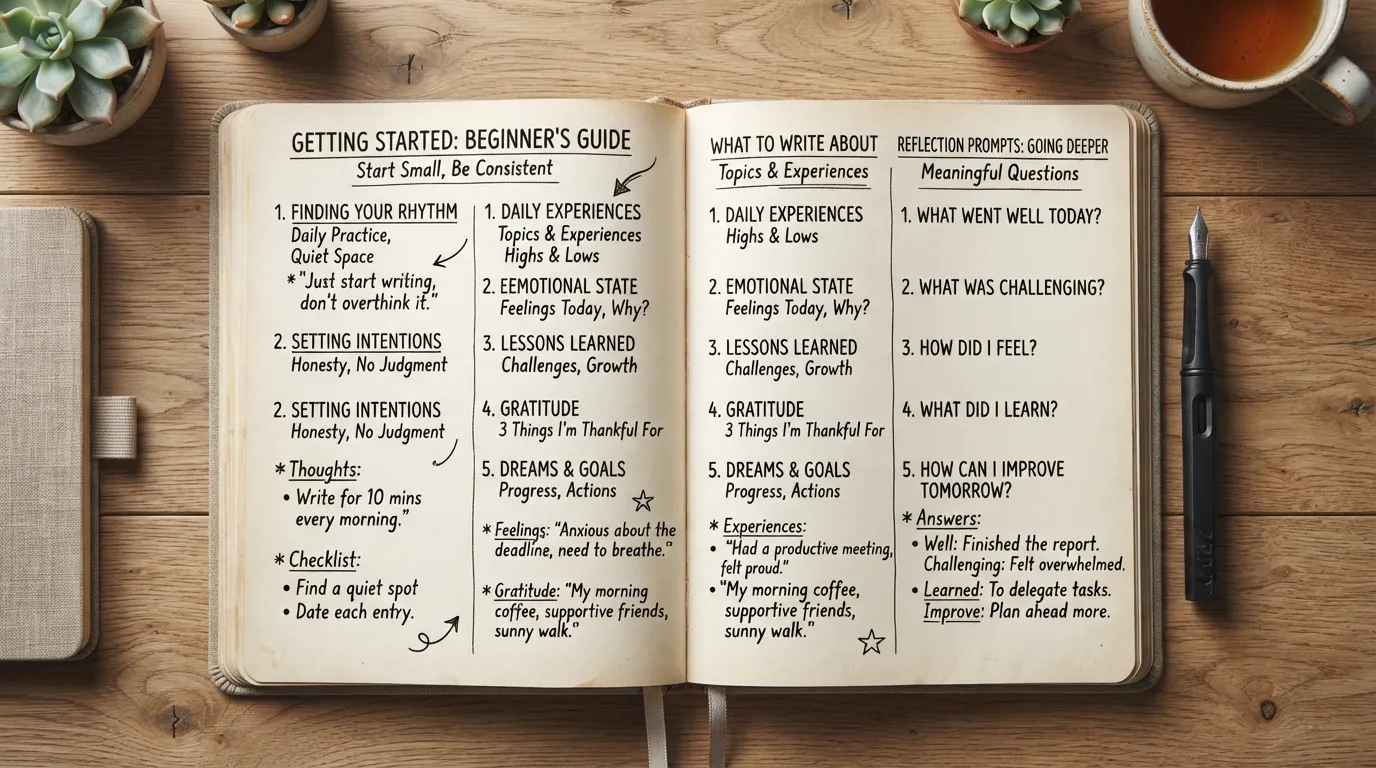 GETTING STARTED: BEGINNER'S GUIDE
Start Small, Be Consistent
1. FINDING YOUR RHYTHM
Daily Practice,
Quiet Space
* "Just start writing,
don't overthink it."
2. SETTING INTENTIONS
Honesty, No Judgment
2. SETTING INTENTIONS
Honesty, No Judgment
* Thoughts:
• Write for 10 mins
every morning."
* Checklist:
• Find a quiet spot
• Date each entry.
1. DAILY EXPERIENCES
Topics & Experiences
Highs & Lows
2. EEMOTIONAL STATE
Feelings Today, Why?
3. LESSONS LEARNED
Challenges, Growth
4. GRATITUDE
3 Things I'm Thankful For
5. DREAMS & GOALS
Progress, Actions
* Feelings: "Anxious about the
deadline, need to breathe."
* Gratitude: "My morning
coffee, supportive friends,
sunny walk."
WHAT TO WRITE ABOUT
Topics & Experiences
1. DAILY EXPERIENCES
Highs & Lows
2. EMOTIONAL STATE
Feelings Today, Why?
3. LESSONS LEARNED
Challenges, Growth
4. GRATITUDE
3 Things I'm Thankful For
5. DREAMS & GOALS
Progress, Actions
* Experiences:
• "Had a productive meeting,
felt proud."
• "My morning coffee,
supportive friends,
sunny walk."
REFLECTION PROMPTS: GOING DEEPER
Meaningful Questions
1. WHAT WENT WELL TODAY?
2. WHAT WAS CHALLENGING?
3. HOW DID I FEEL?
4. WHAT DID I LEARN?
5. HOW CAN I IMPROVE
TOMORROW?
* Answers:
• Well: Finished the report.
Challenging: Felt overwhelmed.
• Learned: To delegate tasks.
Improve: Plan ahead more.